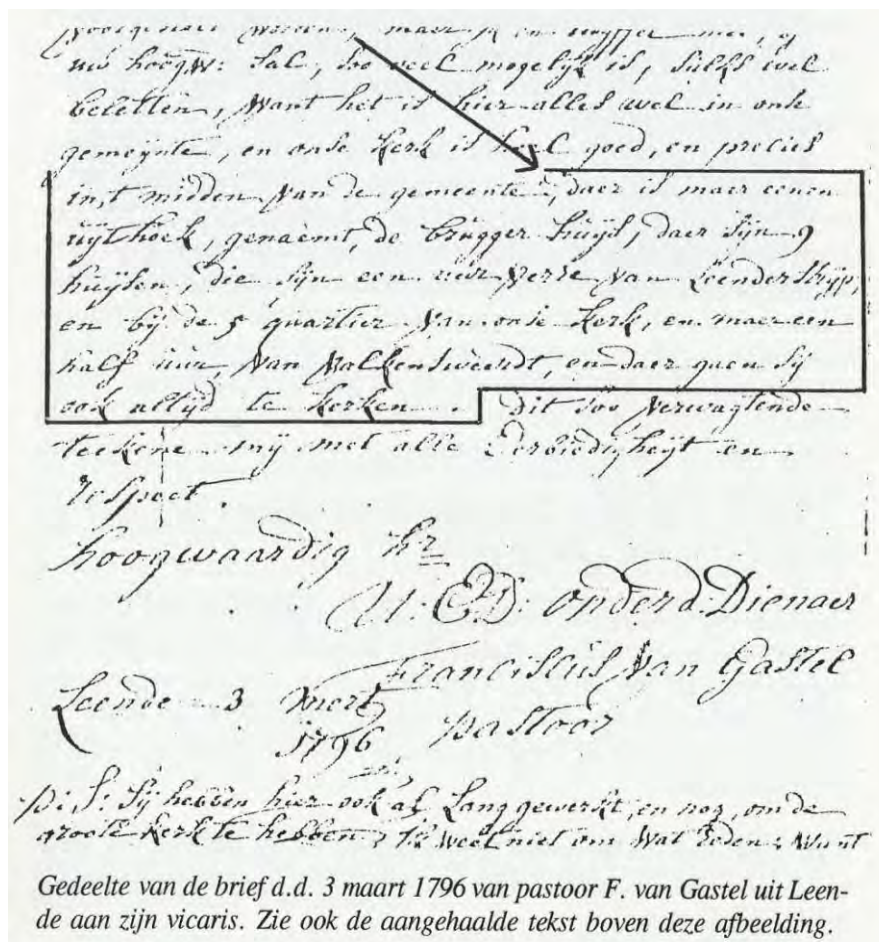 maer ik en twyffer niet, of
uw hoogw: sal, soo veel mogelyk is, sulks wel
beletten, want het is hier alles wel in onse
gemeynte, en onse kerk is heel goed, en precies
in,t midden van de gemeente, daer is maer eenen
uythoek, genaemt, de brugger huys, daer syn 9
huysen, die syn een uur verre van Leenderstryp,
en bij de 5 quartier van onse kerk, en maer een
half uur, van valkensweerdt, en daer gaen sy
ook altyd te kerken. dit soo verwagtende
teekene mij met alle Eerbiedigheyt en
respect.
hoogwaardig hr
U: ED: onderd. Dienaer
Franciscus van Gastel
Leende 3 mert
1796 pastoor
P: S: Sy hebben hier ook al lang gewerkt, en nog, om de
groote kerk te hebben, ik weet niet om wat reden; want
Gedeelte van de brief d.d. 3 maart 1796 van pastoor F. van Gastel uit Leen-
de aan zijn vicaris. Zie ook de aangehaalde tekst boven deze afbeelding.